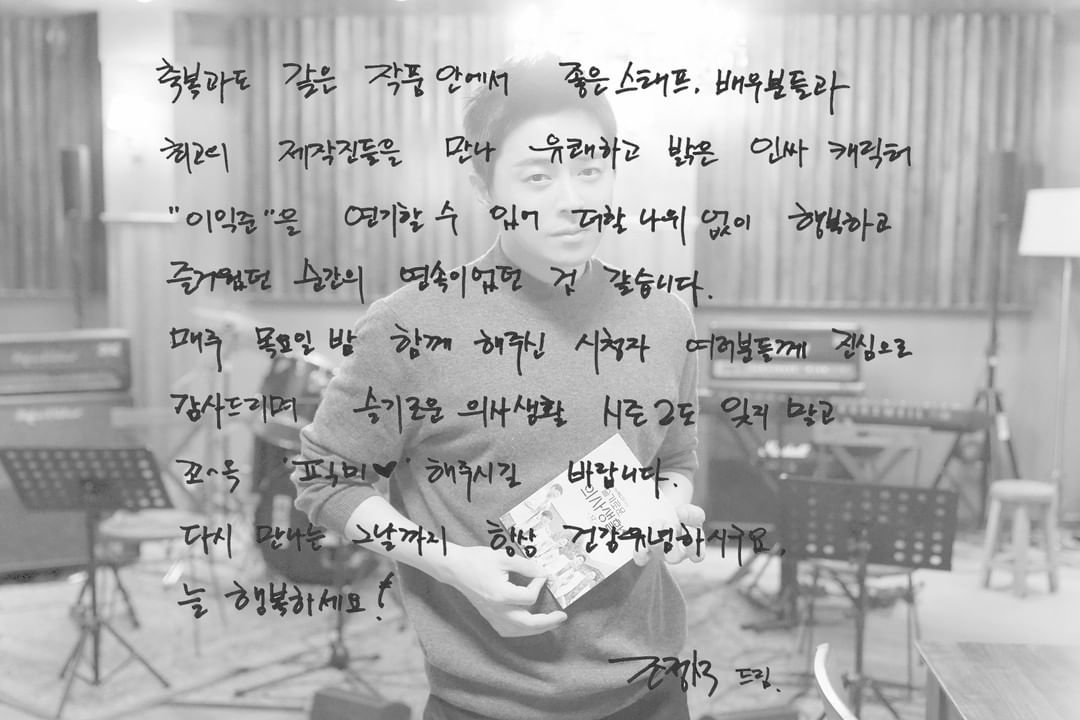 축복과도 같은 작품 안에서 좋은 스태프, 배우분들과
최고의 제작진들을 만나 유쾌하고 밝은 인싸 캐릭터
"이익준"을 연기할 수 있어 더할 나위 없이 행복하고
즐거웠던 순간의 연속이었던 것 같습니다.
매주 목요일 밤 함께 해주신 시청자 여러분들께 진심으로
감사드리며 슬기로운 의사생활 시즌2도 잊지 말고
꼬~옥 '픽미♥' 해주시길 바랍니다.
다시 만나는 그날까지 항상 건강하시구요,
늘 행복하세요!
조정석 드림.
슬기로운
의사생활